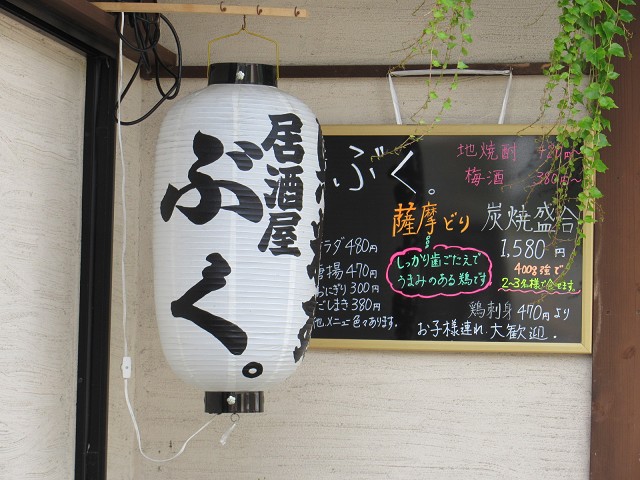 居酒屋
ぶく。
ぶく。
地焼酎 420円~
梅酒 380円~
薩摩どり 炭焼盛合
1,580円
しっかり歯ごたえで
うまみのある鶏です
400g強で
2~3人様で食せます。
ラダ 480円
唐揚 470円
おにぎり 300円
ごしまき 380円
他、メニュー色々あります。
鶏刺身 470円より
お子様連れ、大歓迎.